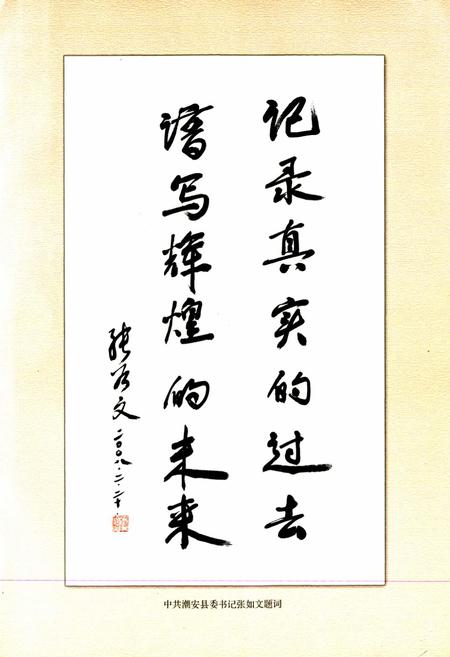 记录真实的过去
谱写辉煌的未来
张为文
二〇〇八.二.二十.
中共潮安县委书记张如文题词